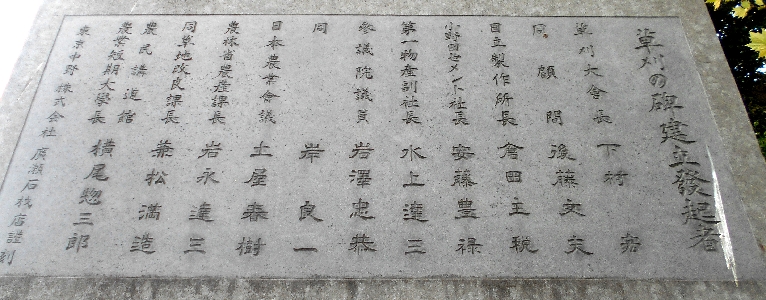 草刈の碑建立發起者
草刈大會長 下村 宏
同 顧問 後藤文夫
日立製作所長 倉田主税
小野田セメント社長 安藤豊禄
第一物産副社長 水上達三
參議院議員 岩澤忠恭
同 岸 良一
日本農業會議 土屋春樹
農林省農産課長 岩永達三
同草地改良課長 兼松満造
農民講道館 農業短期大學長 横尾惣三郎
東京中野 株式会社 廣瀬石材店謹刻